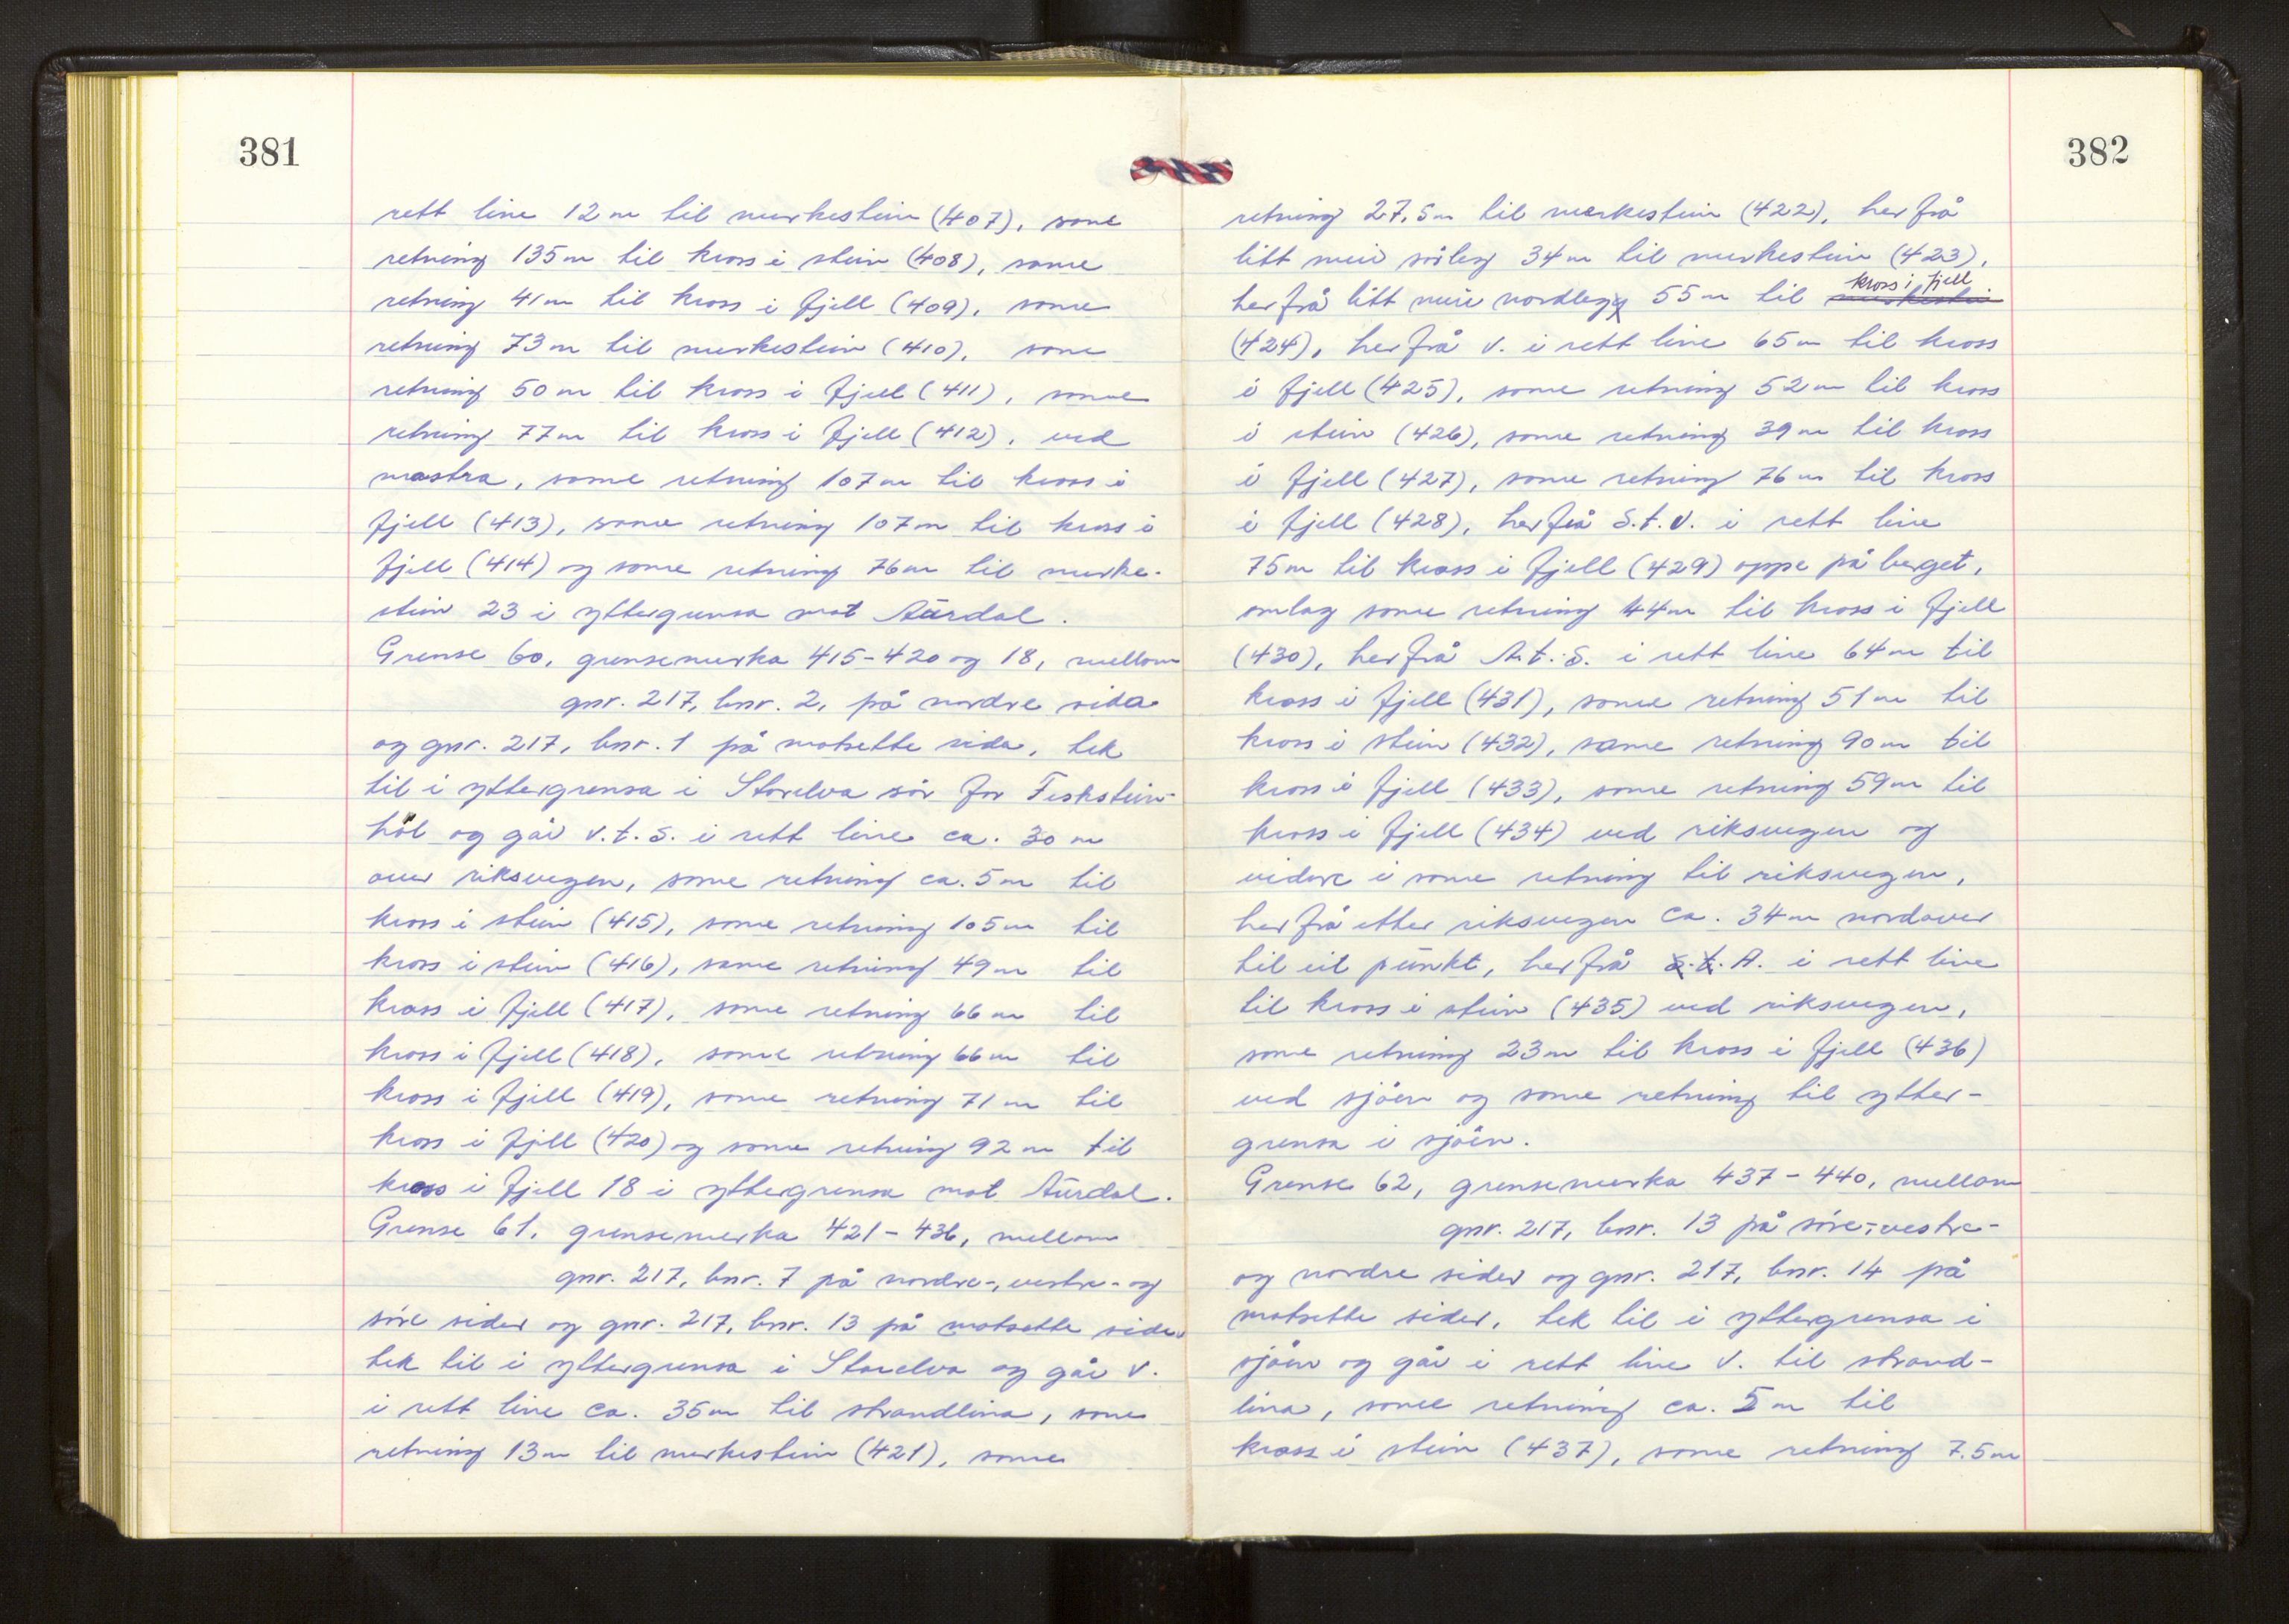 381
rett line 12 m til merkestein (407), same
retning 135 m til kross i stein (408), same
retning 41 m til kross i fjell (409), same
retning 73 m til merkestein (410), same
retning 50 m til kross i fjell (411), same
retning 77 m til kross i fjell (412), ved
mastra, same retning 107 m til kross i
fjell (413), same retning 107 m til kross i
fjell (414) og same retning 76 m til merke-
stein 23 i yttergrensa mot Aurdal.
Grense 60, grensemerka 415-420 og 18, mellom
gnr. 217, bnr. 2, på nordre sida
og gnr. 217, bnr. 1 på motsette sida, tek
til i yttergrensa i Storelva sör for Feskstein-
höl og går v.t.S. i rett line ca. 30 m
over riksvegen, same retning ca. 5 m til
kross i stein (415), same retning 105 m til
kross i stein (416), same retning 49 m til
kross i fjell (417), same retning 66 m til
kross i fjell (418), same retning 66 m til
kross i fjell (419), same retning 71 m til
kross i fjell (420) og same retning 92 m til
kross i fjell 18 i yttergrensa mot Aurdal.
Grense 61, grensemerka 421-436, mellom
gnr. 217, bnr. 7 på nordre-, vestre- og
söre sider og gnr. 217, bnr. 13 på motsette sider
tek til i yttergrensa i Storelva og går v.
i rett line ca. 35 m til strandlina, same
retning 13 m til merkestein (421), same
382
retning 27,5 m til merkestein (422), herfrå
litt meir sörleg 34 m til merkestein (423),
kross i fjell
herfrå litt meir nordleg 55 m til merkestein
(424), herfrå v. i rett line 65 m til kross
i fjell (425), same retning 52 m til kross
i stein (426), same retning 39 m til kross
i fjell (427), same retning 76 m til kross
i fjell (428), herfrå S.t.V. i rett line
75 m til kross i fjell (429) oppe på berget,
omlag same retning 44 m til kross i fjell
(430), herfrå A.t.S. i rett line 64 m til
kross i fjell (431), same retning 51 m til
kross i stein (432), same retning 90 m til
kross i fjell (433), same retning 59 m til
kross i fjell (434) ved riksvegen og
vidare i same retning til riksvegen,
herfrå etter riksvegen ca. 34 m nordover
til eit punkt, herfrå S.t. A. i rett line
til kross i stein (435) ved riksvegen,
same retning 23 m til kross i fjell (436)
ved sjöen og same retning til ytter-
grensa i sjöen.
Grense 62, grensemerka 437-440, mellom
gnr. 217, bnr. 13 på söre-, vestre-
og nordre sider og gnr. 217, bnr. 14 på
motsette sider, tek til i yttergrensa i
sjöen og går i rett line V. til strand-
lina, same retning ca. 5 m til
kross i stein (437), same retning 7.5 m